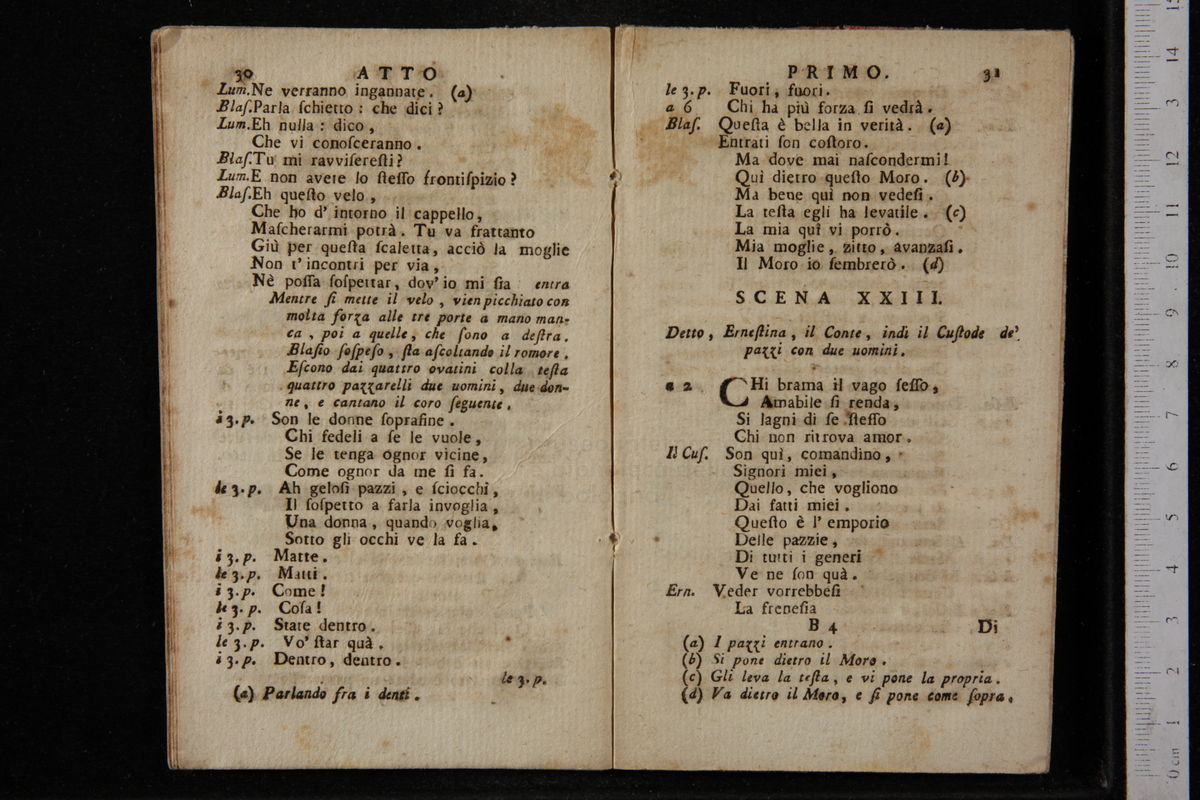 30 ATTO
Lum. Ne verranno ingannate. (a)
Blaſ. Parla ſchietto: che dici?
Lum. Eh nulla: dico,
Che vi conoſceranno.
Blaſ. Tu mi ravviſereſti?
Lum. E non avete lo ſteſſo frontiſpizio?
Blaſ. Eh queſto velo,
Che ho d' intorno il cappello,
Maſcherarmi potrà. Tu va frattanto
Giù per queſta ſcaletta, acciò la moglie
Non t' incontri per via,
Nè poſſa ſoſpettar, dov' io mi ſia entra
Mentre ſi mette il velo, vien picchiato con
molta forza alle tre porte a mano man-
ca, poi a quelle, che ſono a deſtra.
Blaſio ſoſpeſo, ſta aſcoltando il romore.
Eſcono dai quattro ovatini colla teſta
quattro pazzarelli due uomini, due don-
ne, e cantano il coro ſeguente.
i 3. p. Son le donne ſopraſine.
Chi fedeli a ſe le vuole,
Se le tenga ognor vicine,
Come ognor da me ſi fa.
le 3. p. Ah geloſi pazzi, e ſciocchi,
Il ſoſpetto a farla invoglia,
Una donna, quando voglia,
Sotto gli occhi ve la fa.
i 3. p. Matte.
le 3. p. Matti.
i 3. p. Come!
le 3. p. Coſa!
i 3. p. State dentro.
le 3. p. Vo' ſtar quà.
i 3. p. Dentro, dentro.
le 3. p.
(a) Parlando fra i denti.
PRIMO. 31
le 3. p. Fuori, fuori.
a 6 Chi ha più forza ſi vedrà.
Blaſ. Queſta è bella in verità. (a)
Entrati ſon coſtoro.
Ma dove mai naſcondermi!
Quì dietro queſto Moro. (b)
Ma bene quì non vedeſi.
La teſta egli ha levatile. (c)
La mia quì vi porrò.
Mia moglie, zitto, avanzaſi.
Il Moro io ſembrerò. (d)
SCENA XXIII.
Detto, Erneſtina, il Conte, indi il Cuſtode de'
pazzi con due uomini.
a 2 CHi brama il vago ſeſſo,
Amabile ſi renda,
Si lagni di ſe ſteſſo
Chi non ritrova amor.
Il Cuſ. Son quì, comandino,
Signori miei,
Quello, che vogliono
Dai fatti miei.
Queſto è l' emporio
Delle pazzie,
Di tutti i generi
Ve ne ſon quà.
Ern. Veder vorrebbeſi
La freneſia
B 4 Di
(a) I pazzi entrano.
(b) Si pone dietro il Moro.
(c) Gli leva la teſta, e vi pone la propria.
(d) Va dietro il Moro, e ſi pone come ſopra.